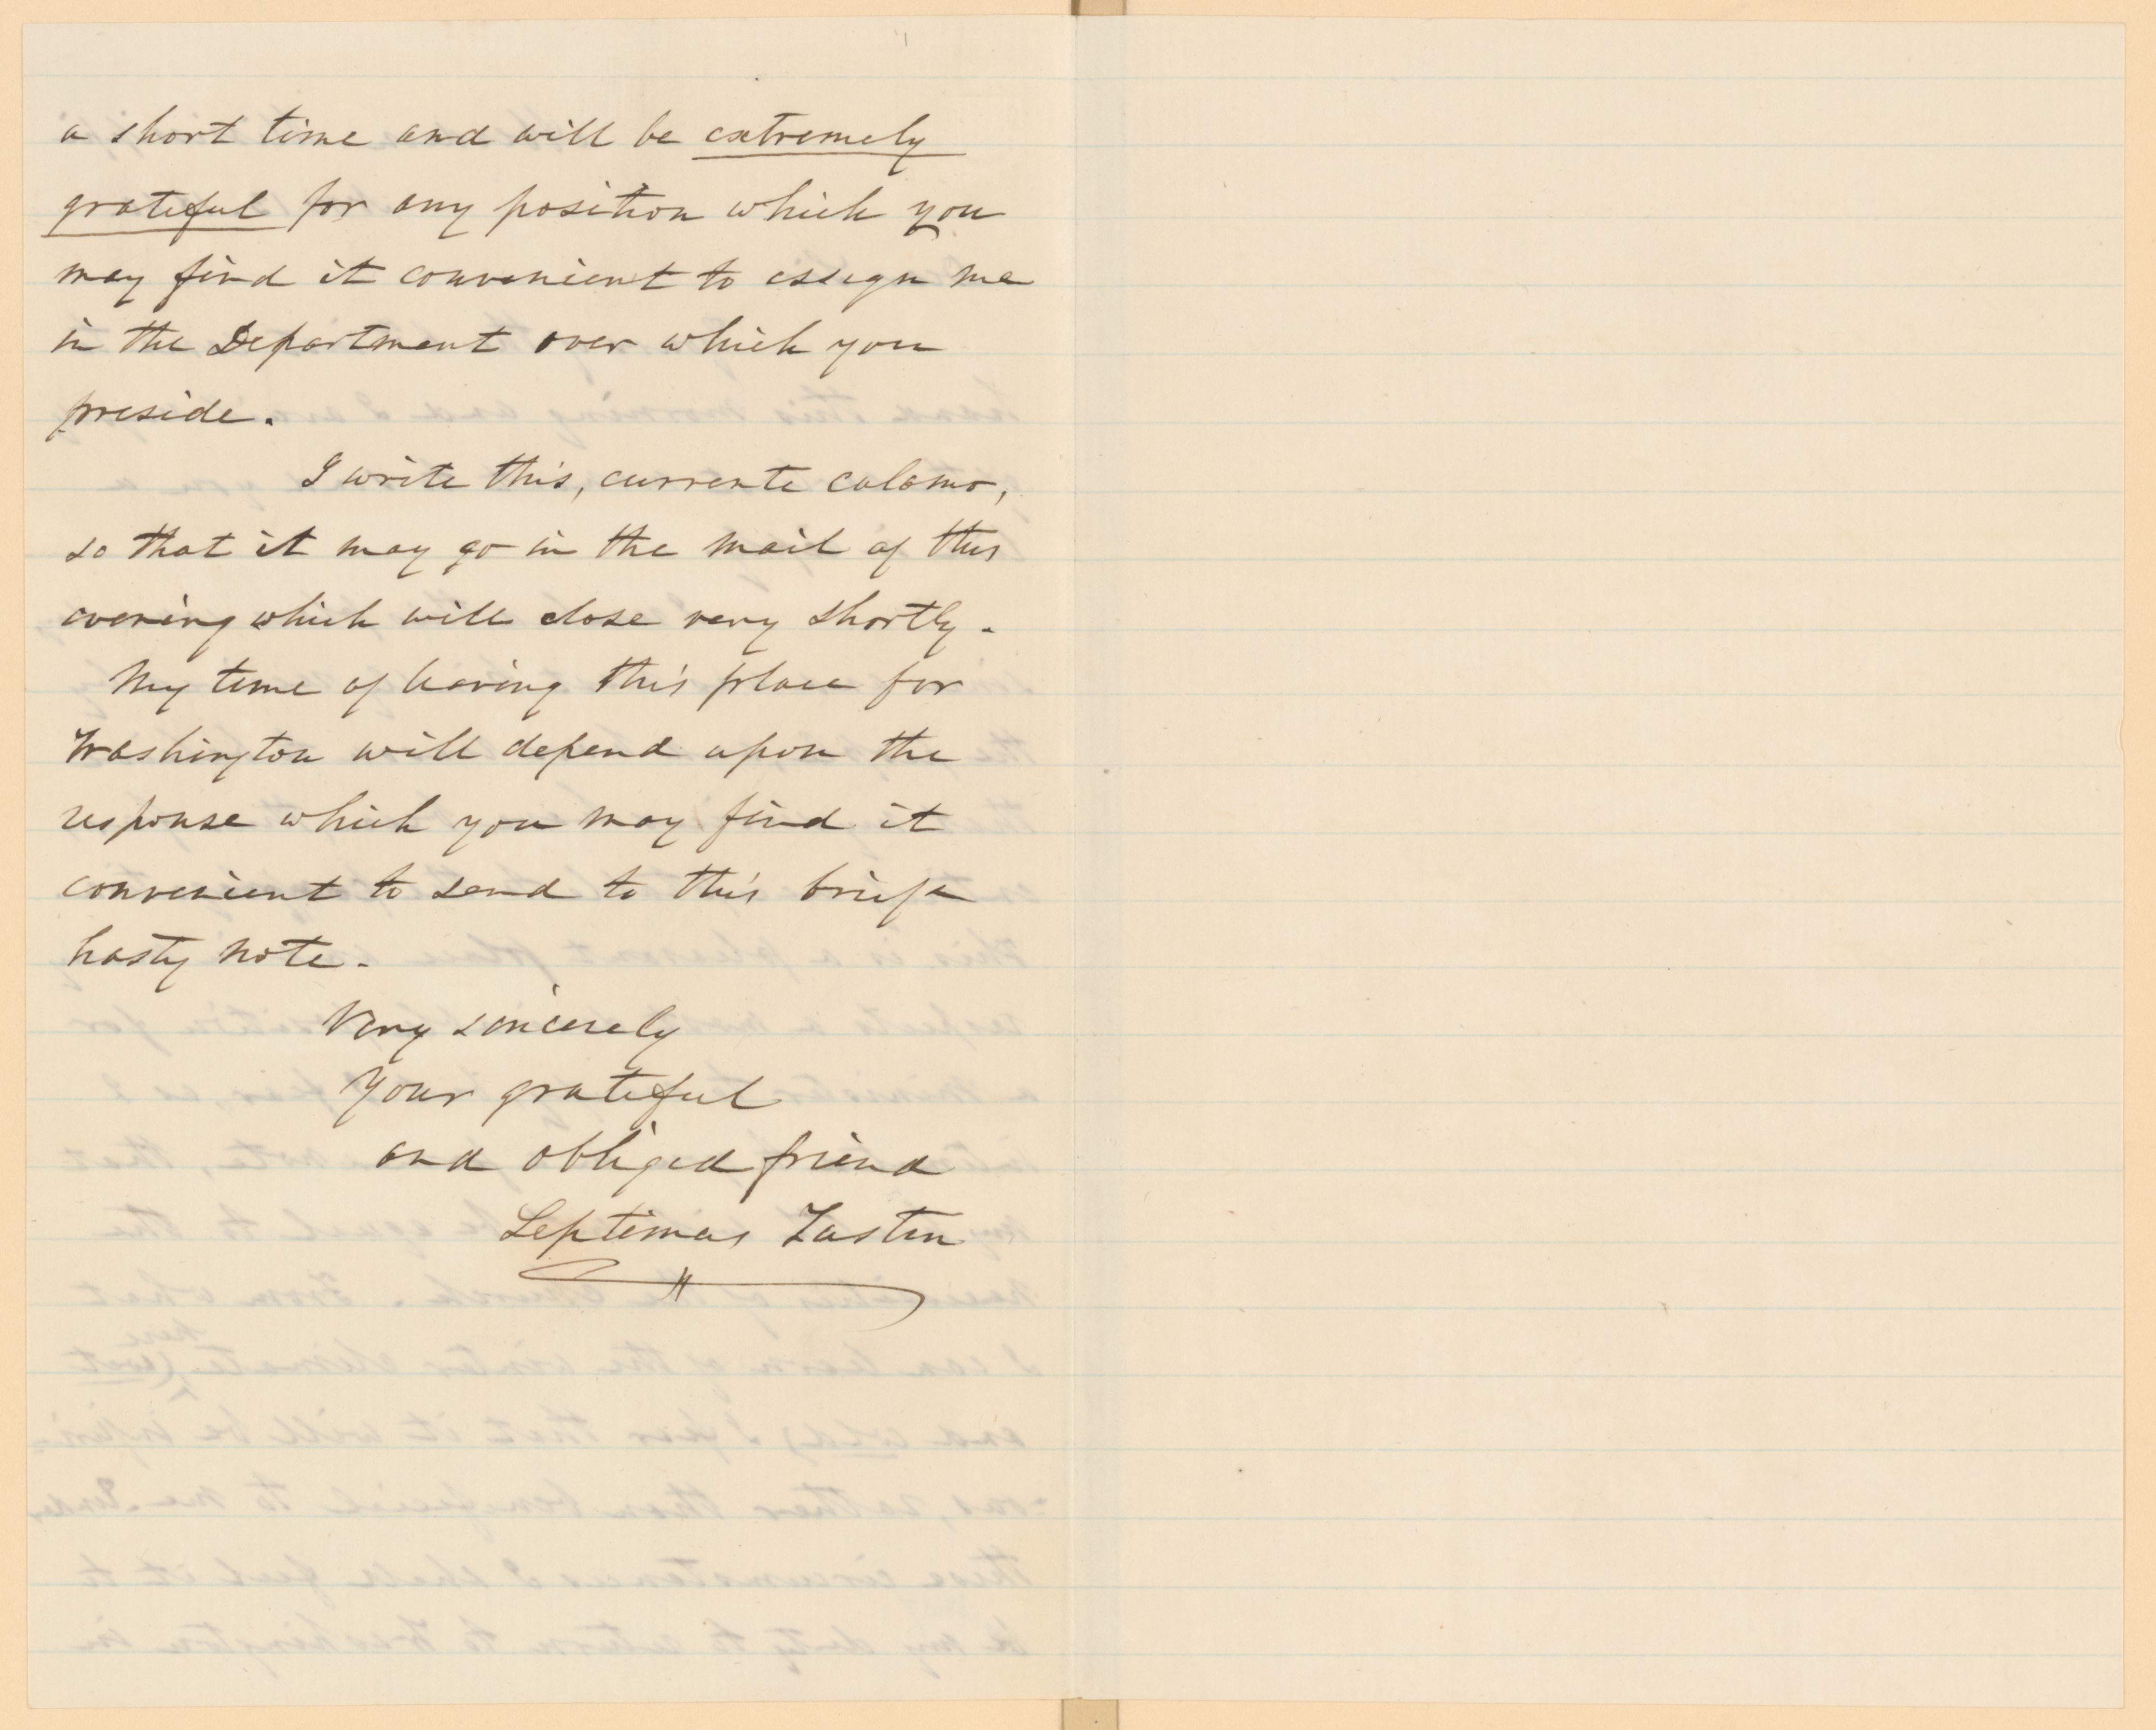 a short time and will be extremely
grateful for any position which you
may find it convenient to assign me
in the Department over which you
preside.
I write this, currente calamo,
so that it may go in the mail of this
evening which will close very shortly.
My time of leaving this place for
Washington will depend upon the
response which you may find it
convenient to send to this brief &
hasty note.
Very sincerely
Your grateful
and obliged friend
Septimus Tustin